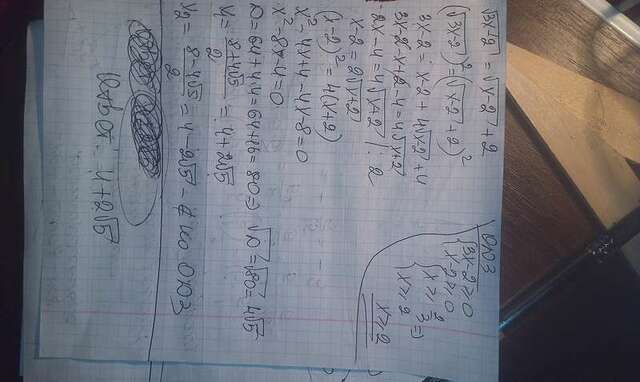 √3x-2 = √x-2 + 2
(√3x-2)² = (√x-2 + 2)²
3x-2 = x-2 + 4√x-2 + 4
3x-2-x+2-4 = 4√x+2
2x-4 = 4√x-2 | 2
x-2 = 2√x+2
(x-2)² = 4(x+2)
x²-4x+4-4x-8=0
x²-8x-4=0
D=64+4·4=64+16=80 => √D=√80=4√5
x₁= 8+4√5/2 = 4+2√5
x₂= 8-4√5/2 = 4-2√5 - ОДЗ
Ответ: 4+2√5
ОДЗ
{3x-2⩾0
x-2⩾0
{x⩾ 2/3 =>
x⩾2
x⩾2